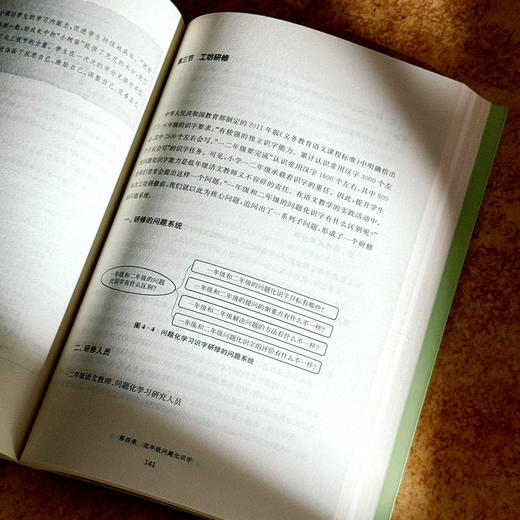 小磁石学生的学习内驱力，促进学生持续地成长。
在成长中的“小树苗”提供了充足的水分，
了向上拔节的力量。学生在一次次的学分兑换中
能体验了反思自己，激励自己，调整自己，完善自己
第三节 工坊研修
中华人民共和国教育部制定的2011年版《义务教育语文课程标准》中明确指出
了1-6年级的识字要求：“有较强的独立识字能力。累计认识常用汉字3000个左
右，其中2500个左右会写。”一二年级要完成“认识常用汉字1600个左右，其中800
个左右会写”的识字任务。可见，小学一二年级承载着识字的重任。因此，提升学生
的问题化识字能力是低年级语文教师义不容辞的责任。在语文教学的实践活动中，
我们常常会提出这样一个问题：“一年级和二年级的问题化识字有什么区别呢？”
本次工坊研修前，我们就以此为核心问题，追问出了一系列子问题，形成了一个研修
的问题系统。
一、研修的问题系统
一年级和二年级的问题
化识字有什么区别？
一年级和二年级的问题化识字目标有哪些？
一年级和二年级的提问的侧重点有什么不一样？
一年级和二年级解决问题的方法有什么不一样？
一年级和二年级问题化识字的评价有什么不一样？
图4-4 问题化学习识字研修的问题系统
二、研修人员
一二年级语文教师、问题化学习研究人员
第四章 低年级问题化识字
161